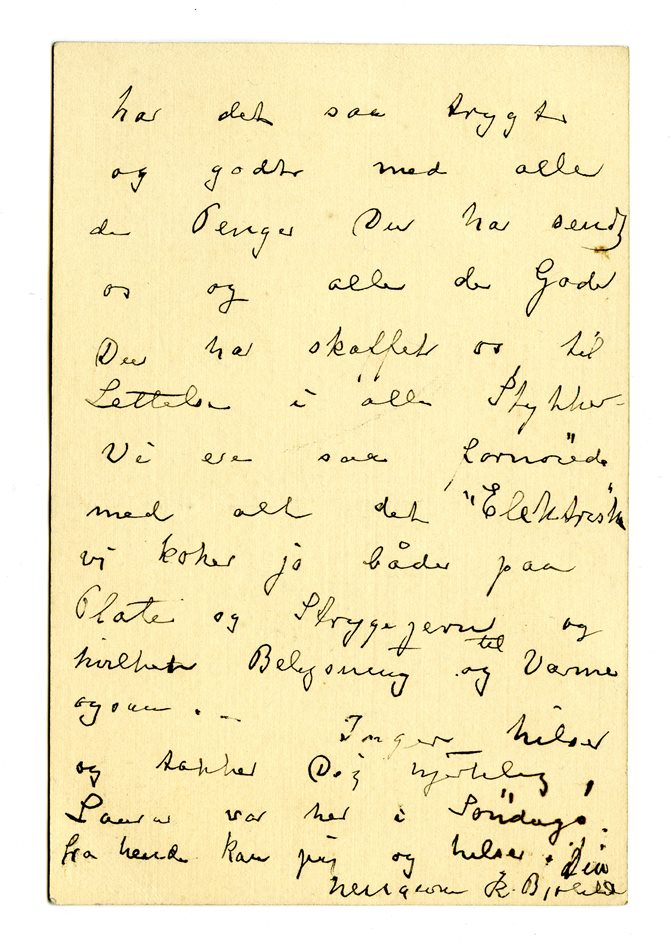 har det saa trygt
og godt med alle
de Penge Du har sendt
os og alle de Goder
Du har skaffet os, til
Lettelse i alle Stykker-
Vi ere saa fornöiede
med alt det "Elektriske"
vi koker jo både paa
Plate og Strygejern og
hvilken Belysning og til Varme
ogsaa. - Inger hilser
og takker Dig hjertelig,
Laura var her i Söndags.
fra hende kan jeg og hilse. Din
hengivne K. Bjölstad